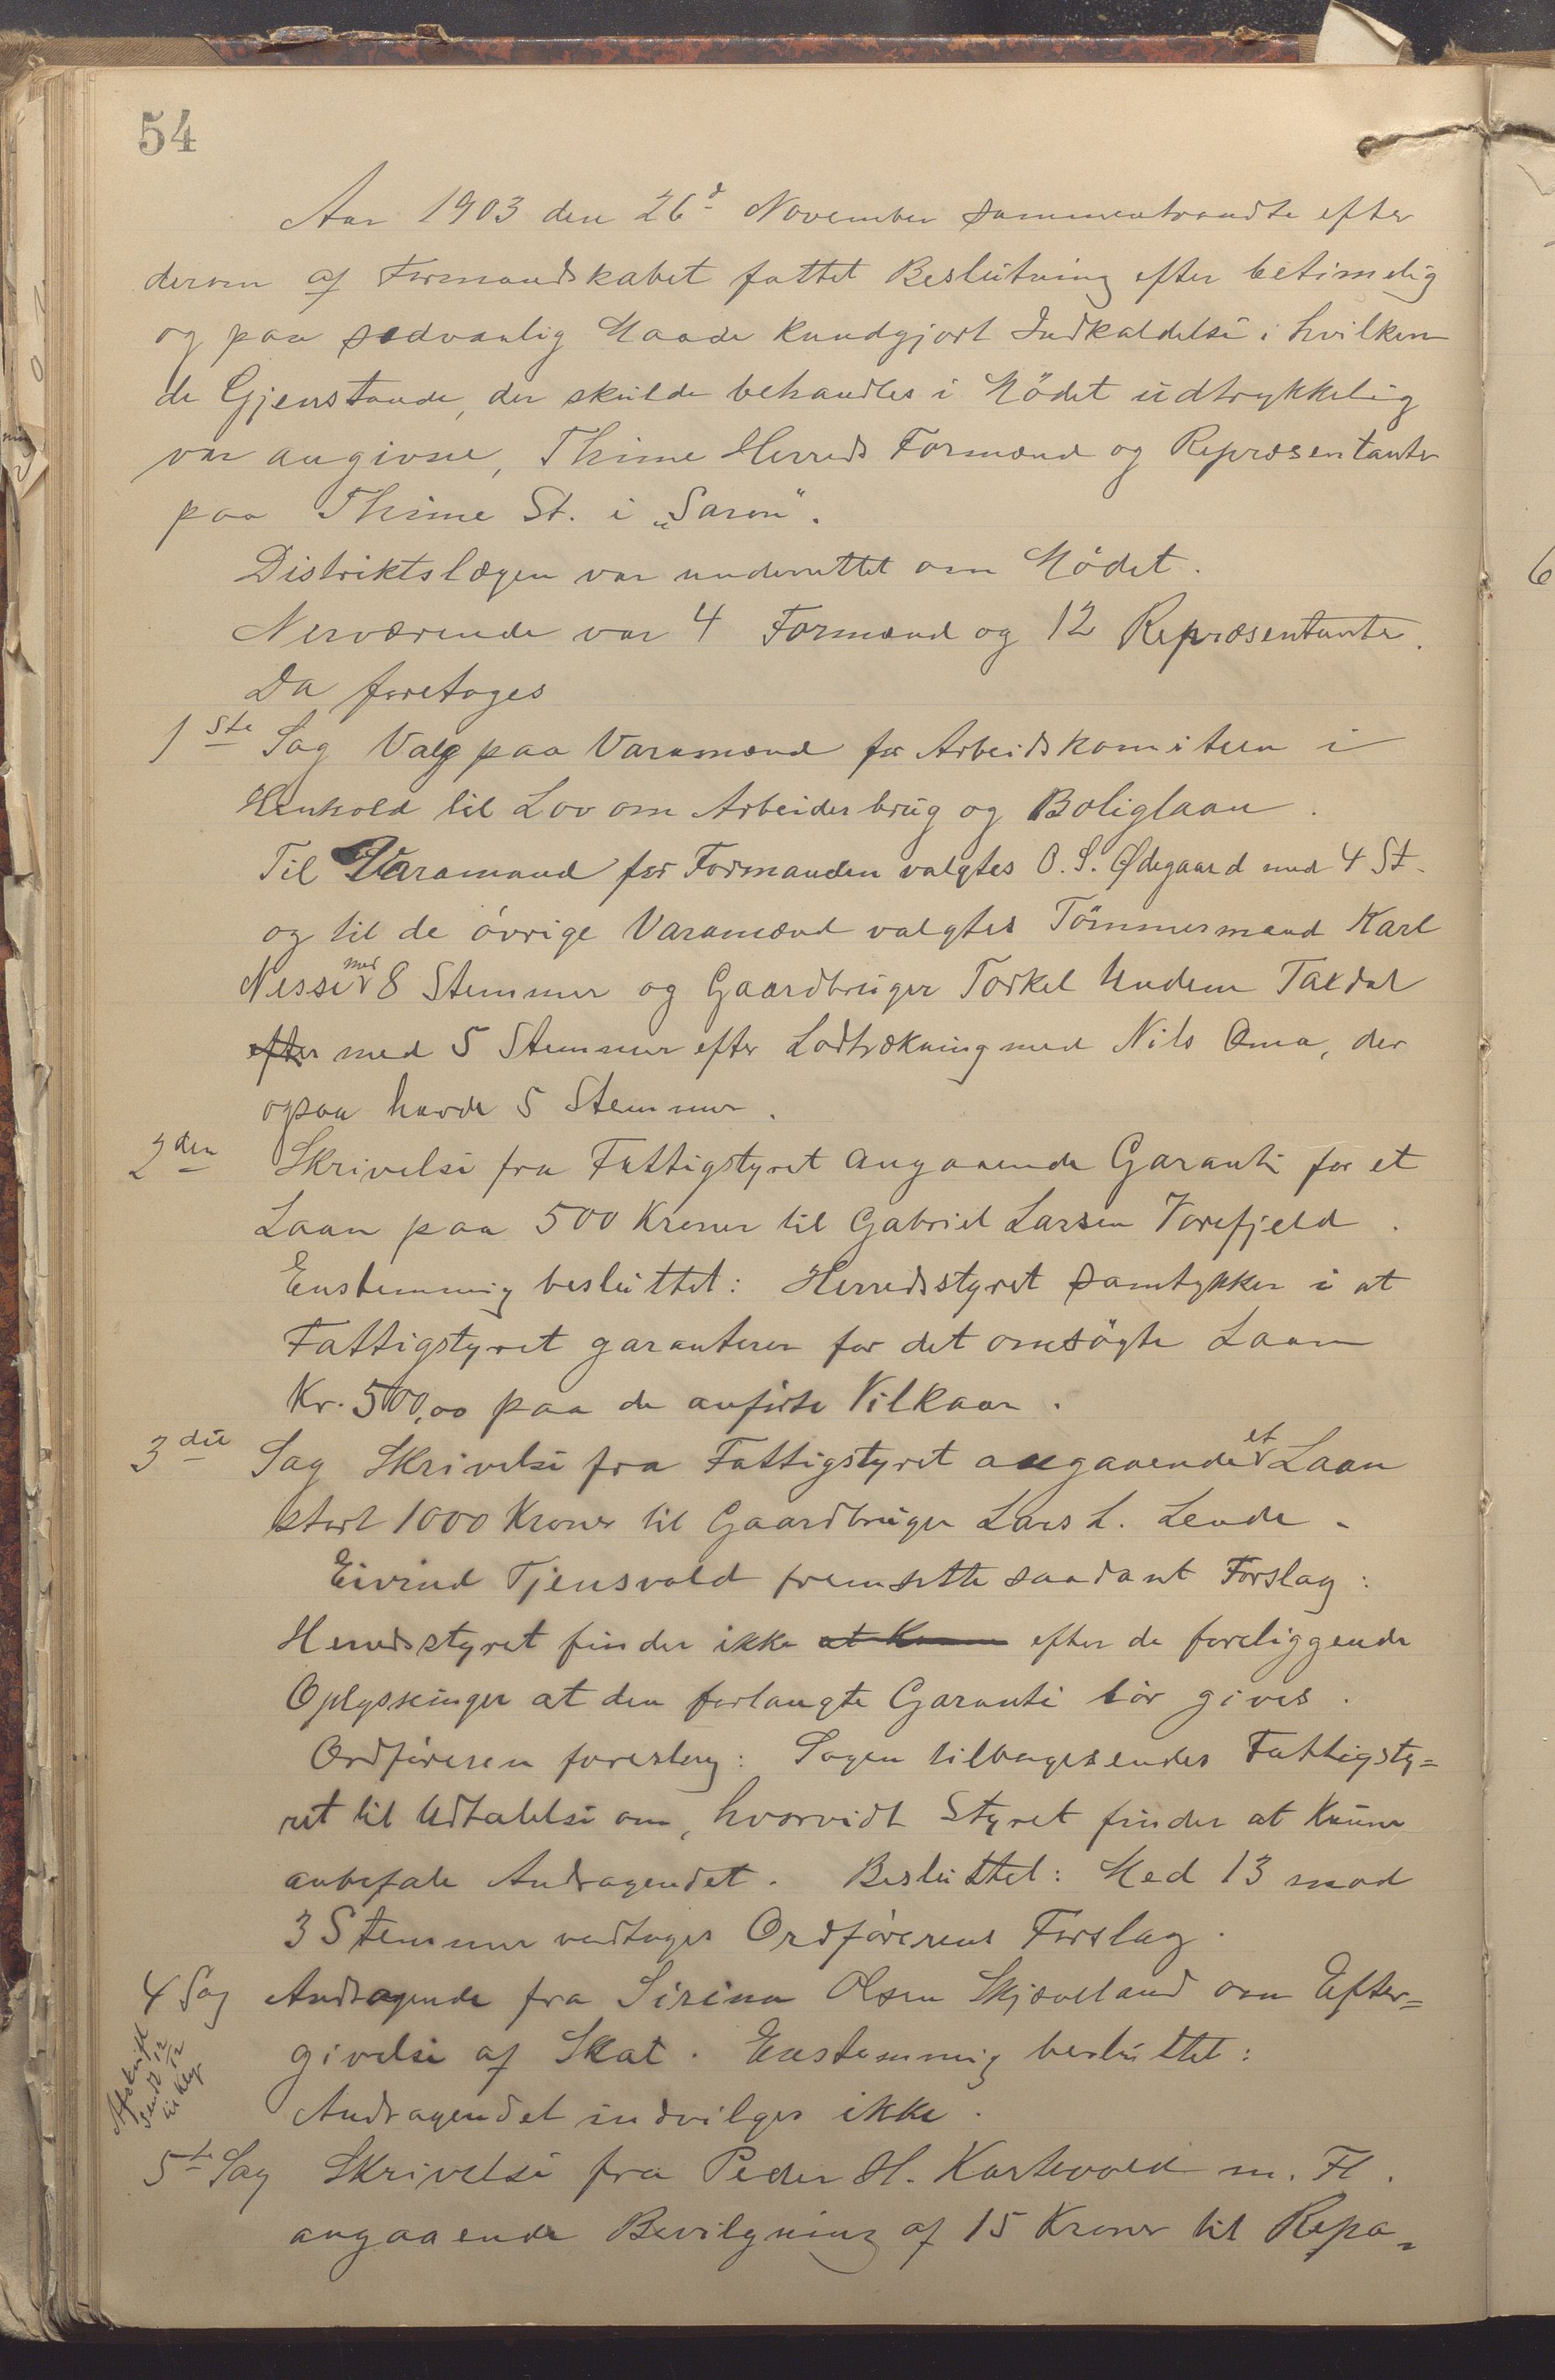 54
Aar 1903 den 26d November sammentraadte efter
derom af Formandskabet fattet Beslutning efter betimelig
og paa sædvanlig Maade kundgjort Indkaldelse i hvilken
de Gjenstande, der skulde behandles i Mödet udtrykkelig
var angivne, Thime Herreds Formænd og Repræsentanter
paa Thime St. i „Saron".
Distriktslægen var underrettet om Mödet.
Nerværende var 4 Formænd og 12 Repræsentanter.
Da foretoges
1ste Sag Valg paa Varamænd for Arbeidskomiteen i
Henhold til Lov om Arbeiderbrug og Boliglaan.
Til Varamand for Formanden valgtes O. S. Ødegaard med 4 St.
og til de övrige Varamænd valgtes Tömmermand Karl
Nesse med 8 Stemmer og Gaardbruger Torkel Undem Taxdal
efter med 5 Stemmer efter Lodtrækning med Nils Oma, der
ogsaa havde 5 Stemmer.
2den Skrivelse fra Fattigstyret angaaende Garanti for et
Laan paa 500 Kroner til Gabriel Larsen Vorefjeld.
Enstemmig besluttet: Herredsstyret samtykker i at
Fattigstyret garanterer for det omsögte Laan
Kr. 500,00 paa de anförte Vilkaar.
3die Sag Skrivelse fra Fattigstyret angaaende et Laan
stort 1000 Kroner til Gaardbruger Lars L. Lende.
Eivind Tjensvold fremsatte saadant Forslag:
Herredsstyret finder ikke at kunne efter de foreliggende
Oplysninger at den forlangte Garanti bör gives.
Ordföreren foreslog: Sagen tilbagesendes Fattigsty=
ret til Udtalelse om, hvorvidt Styret finder at kunne
anbefale Andragendet. Besluttet: Med 13 mod
3 Stemmer vedtoges Ordförerens Forslag.
4 Sag Andragende fra Sirina Olsen Skjæveland om Efter=
givelse af Skat. Enstemmig besluttet:
Afskrift
sendt 12/12
Andragendet indvilges ikke.
5te Sag Skrivelse fra Peder H. Kartevold m. Fl.
angaaende Bevilgning af 15 Kroner til Repa=
6